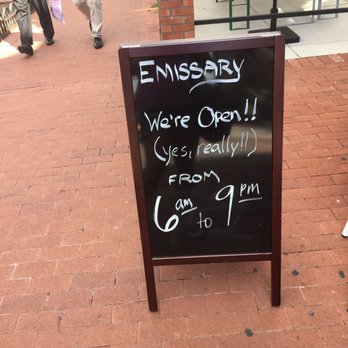 EMISSARY
We're Open!!
(yes, really!!)
FROM
6 am to 9 pm